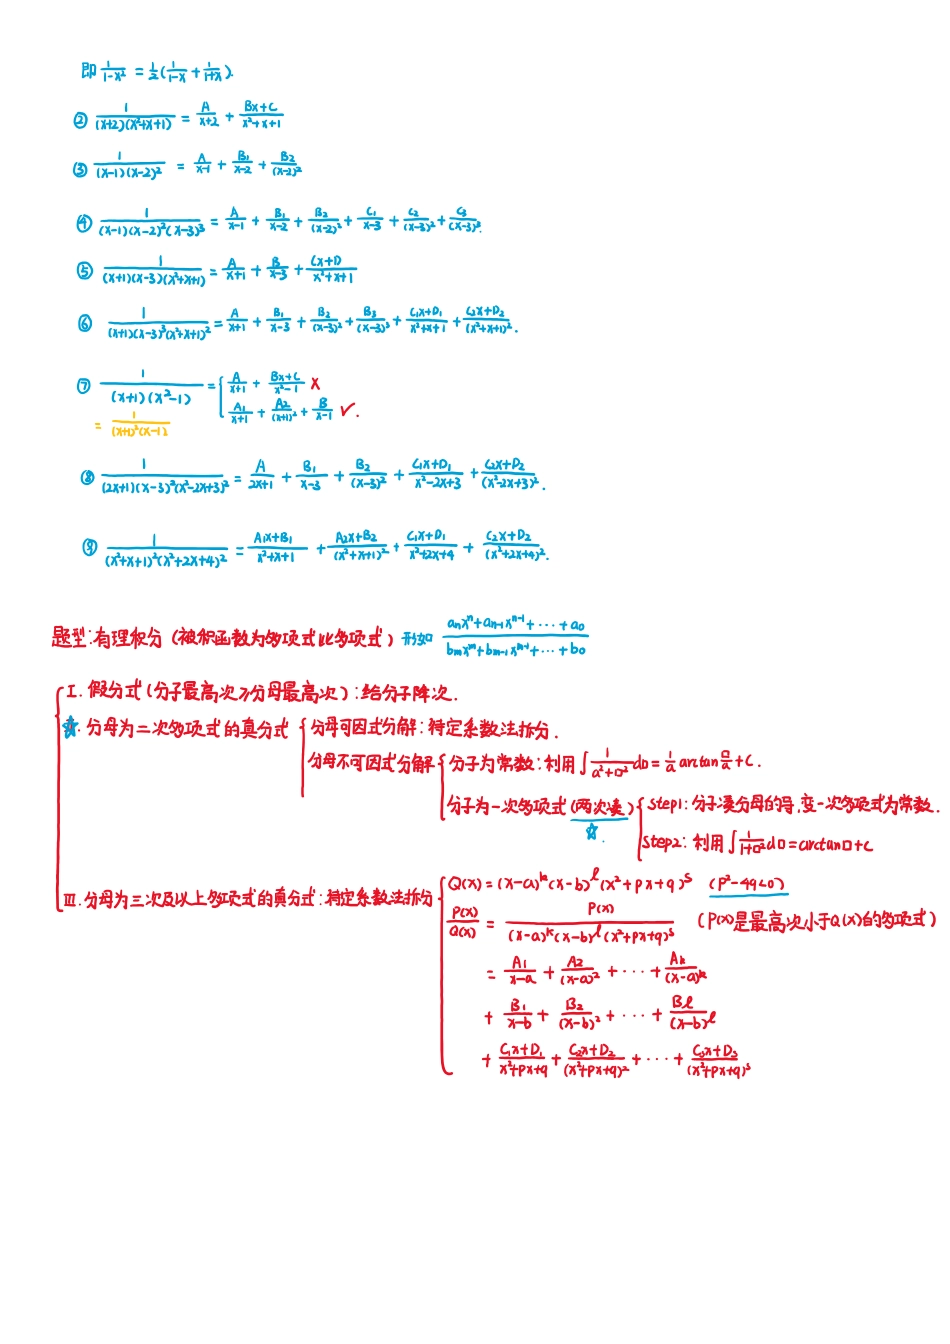 即 1/(1-x²) = 1/2(1/(1-x) + 1/(1+x)).
② 1/((x+2)(x²+x+1)) = A/(x+2) + (Bx+C)/(x²+x+1)
③ 1/((x-1)(x-2)²) = A/(x-1) + B₁/(x-2) + B₂/(x-2)²
④ 1/((x-1)(x-2)²(x-3)³) = A/(x-1) + B₁/(x-2) + B₂/(x-2)² + C₁/(x-3) + C₂/(x-3)² + C₃/(x-3)³.
⑤ 1/((x+1)(x-3)(x²+x+1)) = A/(x+1) + B/(x-3) + (Cx+D)/(x²+x+1)
⑥ 1/((x+1)(x-3)³(x²+x+1)²) = A/(x+1) + B₁/(x-3) + B₂/(x-3)² + B₃/(x-3)³ + (C₁x+D₁)/(x²+x+1) + (C₂x+D₂)/(x²+x+1)².
⑦ 1/((x+1)(x²-1)) = { A/(x+1) + (Bx+C)/(x²-1) ×
A₁/(x+1) + A₂/(x+1)² + B/(x-1) ✓.
= 1/((x+1)²(x-1))
⑧ 1/((2x+1)(x-3)²(x²-2x+3)²) = A/(2x+1) + B₁/(x-3) + B₂/(x-3)² + (C₁x+D₁)/(x²-2x+3) + (C₂x+D₂)/(x²-2x+3)².
⑨ 1/((x²+x+1)²(x²+2x+4)²) = (A₁x+B₁)/(x²+x+1) + (A₂x+B₂)/(x²+x+1)² + (C₁x+D₁)/(x²+2x+4) + (C₂x+D₂)/(x²+2x+4)².
题型:有理积分(被积函数为多项式比多项式) 形如 (aₙxⁿ+aₙ₋₁xⁿ⁻¹+⋯+a₀)/(bₘxᵐ+bₘ₋₁xᵐ⁻¹+⋯+b₀)
I. 假分式(分子最高次≥分母最高次):给分子降次.
☆. 分母为二次多项式的真分式 { 分母可因式分解:待定系数法拆分.
分母不可因式分解 { 分子为常数:利用 ∫1/(a²+□²)d□ = 1/a arctan □/a + C.
分子为一次多项式(两次凑) { Step1:分子凑分母的导,变一次多项式为常数.
☆.
Step2: 利用 ∫1/(1+□²)d□ = arctan□+C
Ⅲ. 分母为三次及以上多项式的真分式:待定系数法拆分 { Q(x) = (x-a)ᵏ(x-b)ˡ(x²+px+q)ˢ (p²-4q<0)
P(x)/Q(x) = P(x)/((x-a)ᵏ(x-b)ˡ(x²+px+q)ˢ) (P(x)是最高次小于Q(x)的多项式)
= A₁/(x-a) + A₂/(x-a)² + ⋯ + Aₖ/(x-a)ᵏ
+ B₁/(x-b) + B₂/(x-b)² + ⋯ + Bₗ/(x-b)ˡ
+ (C₁x+D₁)/(x²+px+q) + (C₂x+D₂)/(x²+px+q)² + ⋯ + (Cₛx+Dₛ)/(x²+px+q)ˢ